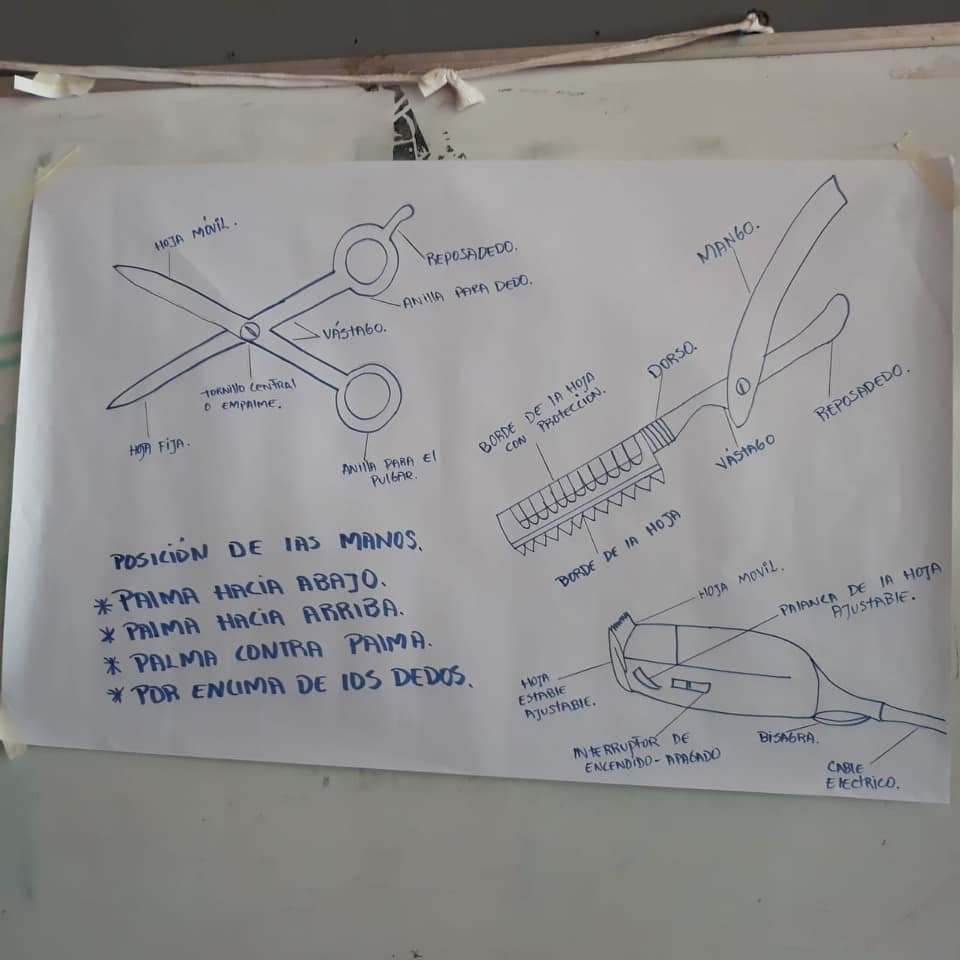 HOJA MÓVIL.
REPOSADEDO.
ANILLA PARA DEDO.
VÁSTAGO.
TORNILLO CENTRAL
O EMPALME.
HOJA FIJA.
ANILLA PARA EL
PULGAR.
MANGO.
DORSO.
BORDE DE LA HOJA
CON PROTECCIÓN.
REPOSADEDO.
VÁSTAGO
BORDE DE LA HOJA
POSICIÓN DE LAS MANOS.
* PALMA HACIA ABAJO.
* PALMA HACIA ARRIBA.
* PALMA CONTRA PALMA.
* POR ENCIMA DE LOS DEDOS.
HOJA MOVIL.
PALANCA DE LA HOJA
AJUSTABLE.
HOJA
ESTABLE
AJUSTABLE.
INTERRUPTOR DE
ENCENDIDO-APAGADO
BISAGRA.
CABLE
ELECTRICO.